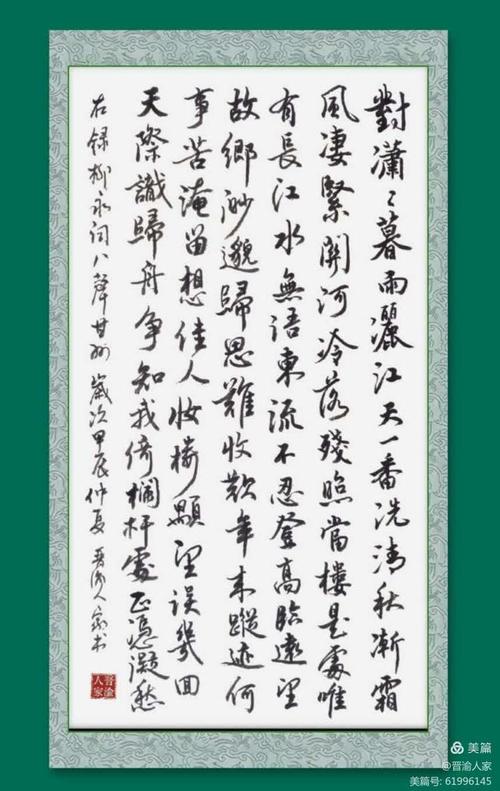 對瀟々暮雨灑江天一番洗清秋漸霜
風凄緊關河冷落殘照當樓是處唯
有長江水無語東流不忍登高臨遠望
故鄉渺邈歸思難收歎年來蹤迹何
事苦淹留想佳人妝樓顒望誤幾回
天際識歸舟爭知我倚欄杆處正恁凝愁
右録柳永詞八聲甘州歲次甲辰仲夏晋渝人家书
晋渝人家
美篇
@晋渝人家
美篇号: 61996145